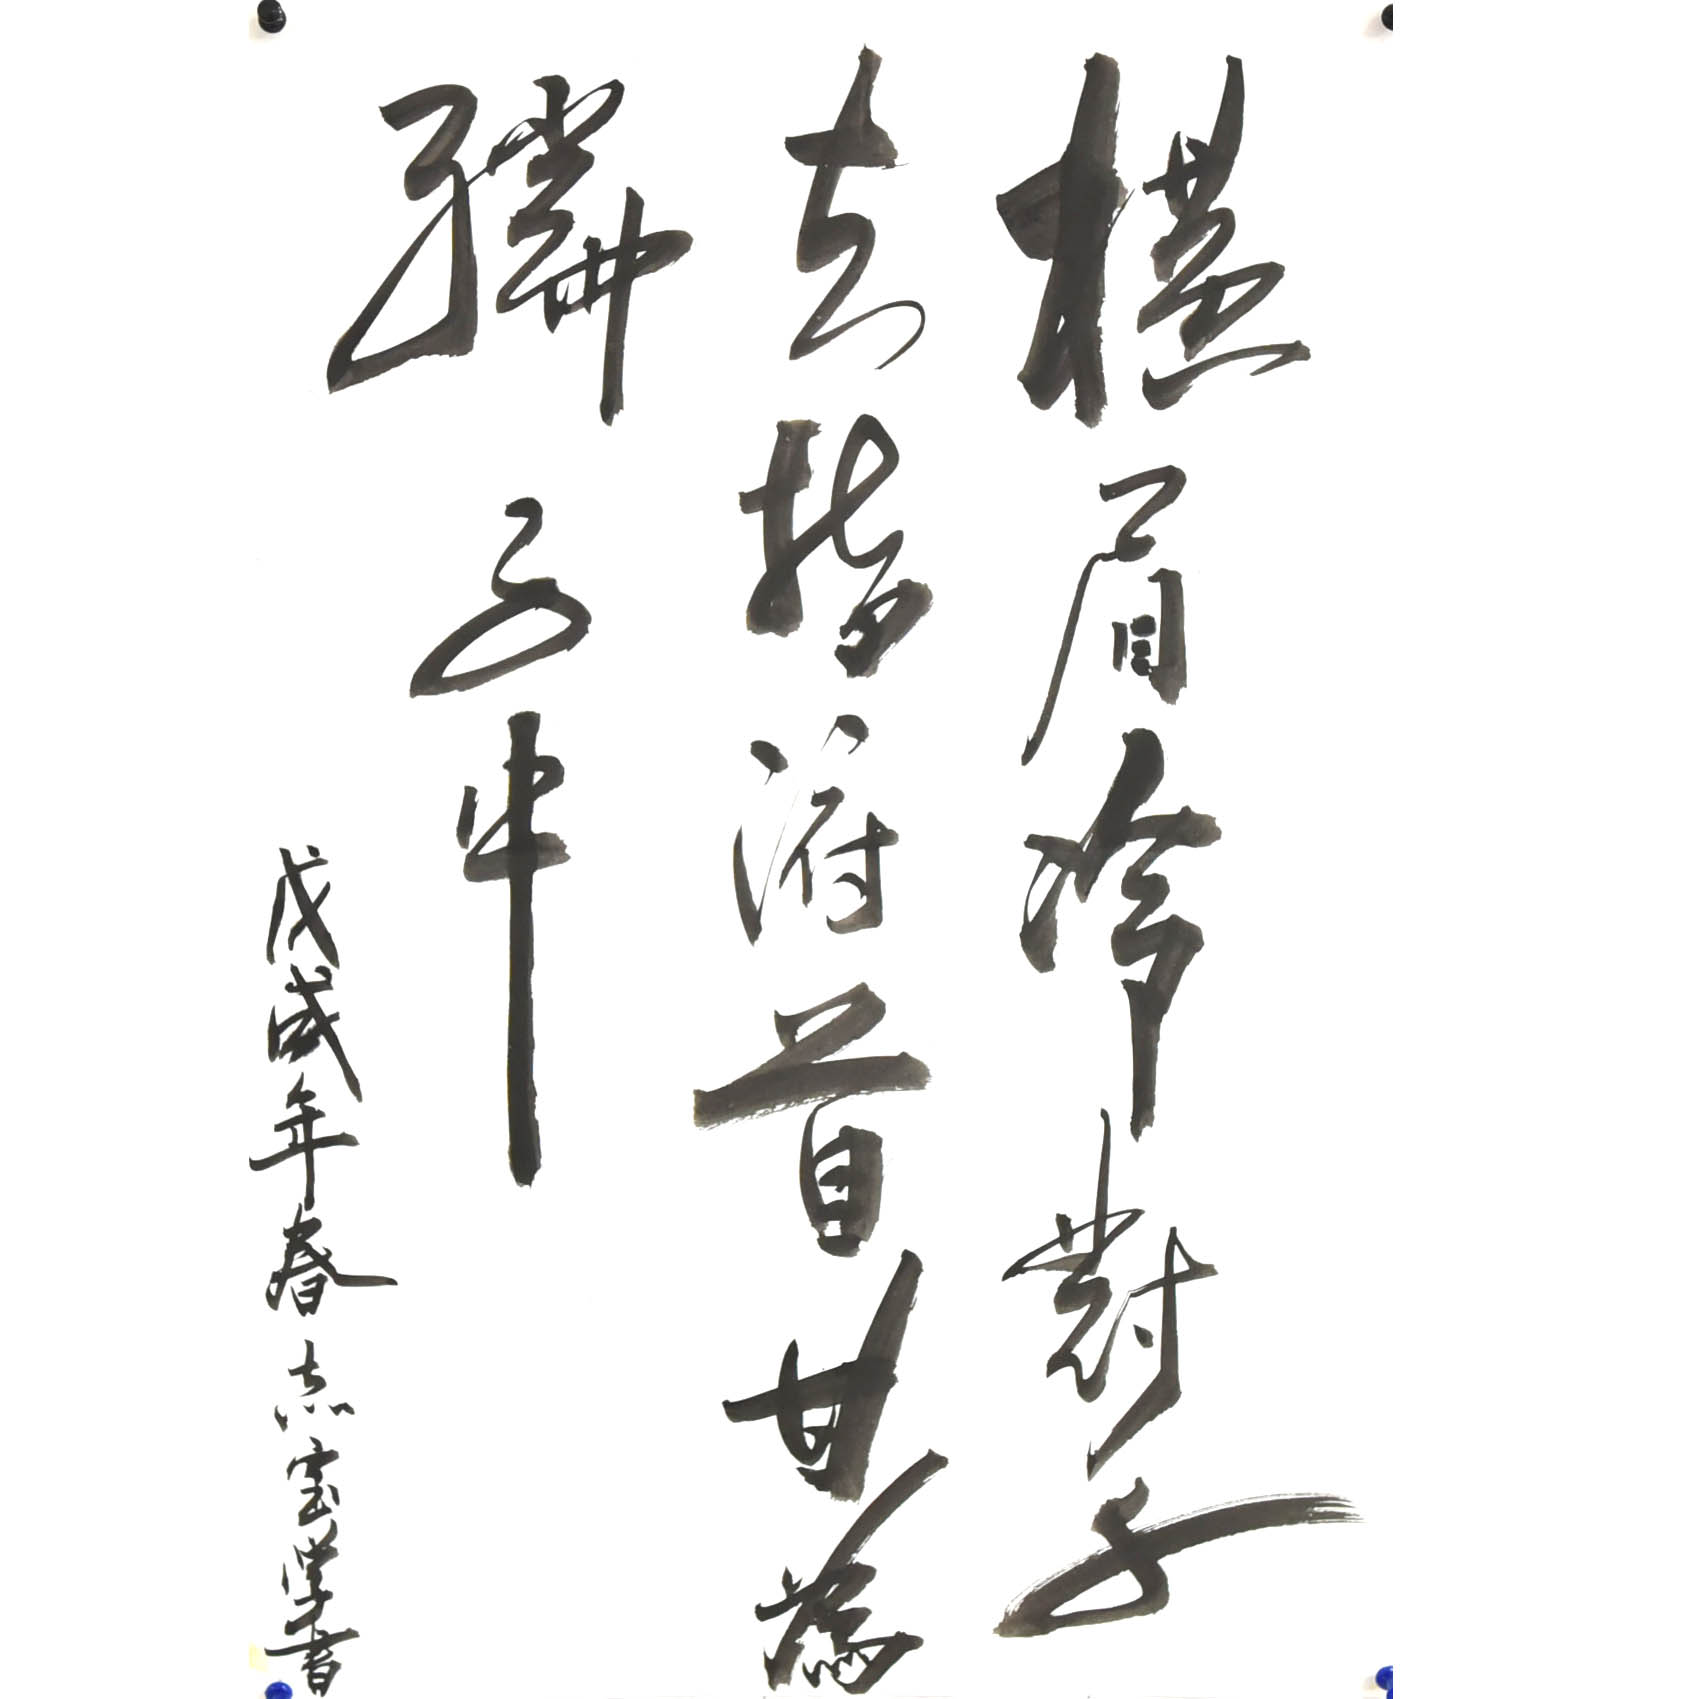 橫眉冷對千
夫指俯首甘為
孺子牛
戊戌年春志宝学書